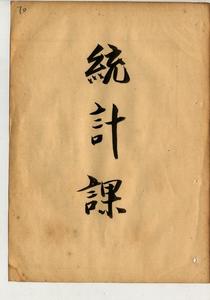 70
統計課